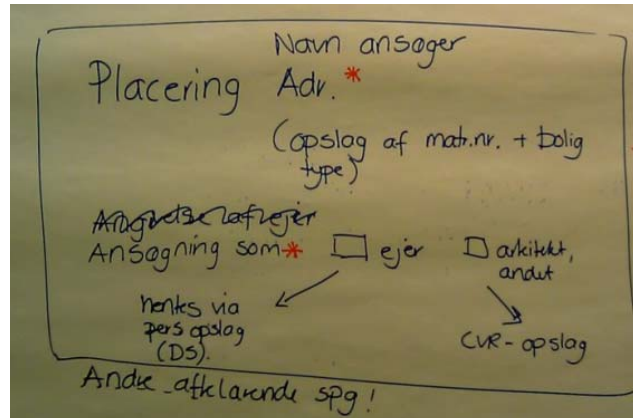 Navn ansøger
Placering Adr. *
(opslag af matr.nr. + bolig
type)
Angivelse af ejer
Ansøgning som * ejer arkitekt,
andet
hentes via
pers opslag
(DS).
CVR-opslag
Andre afklarende spg!